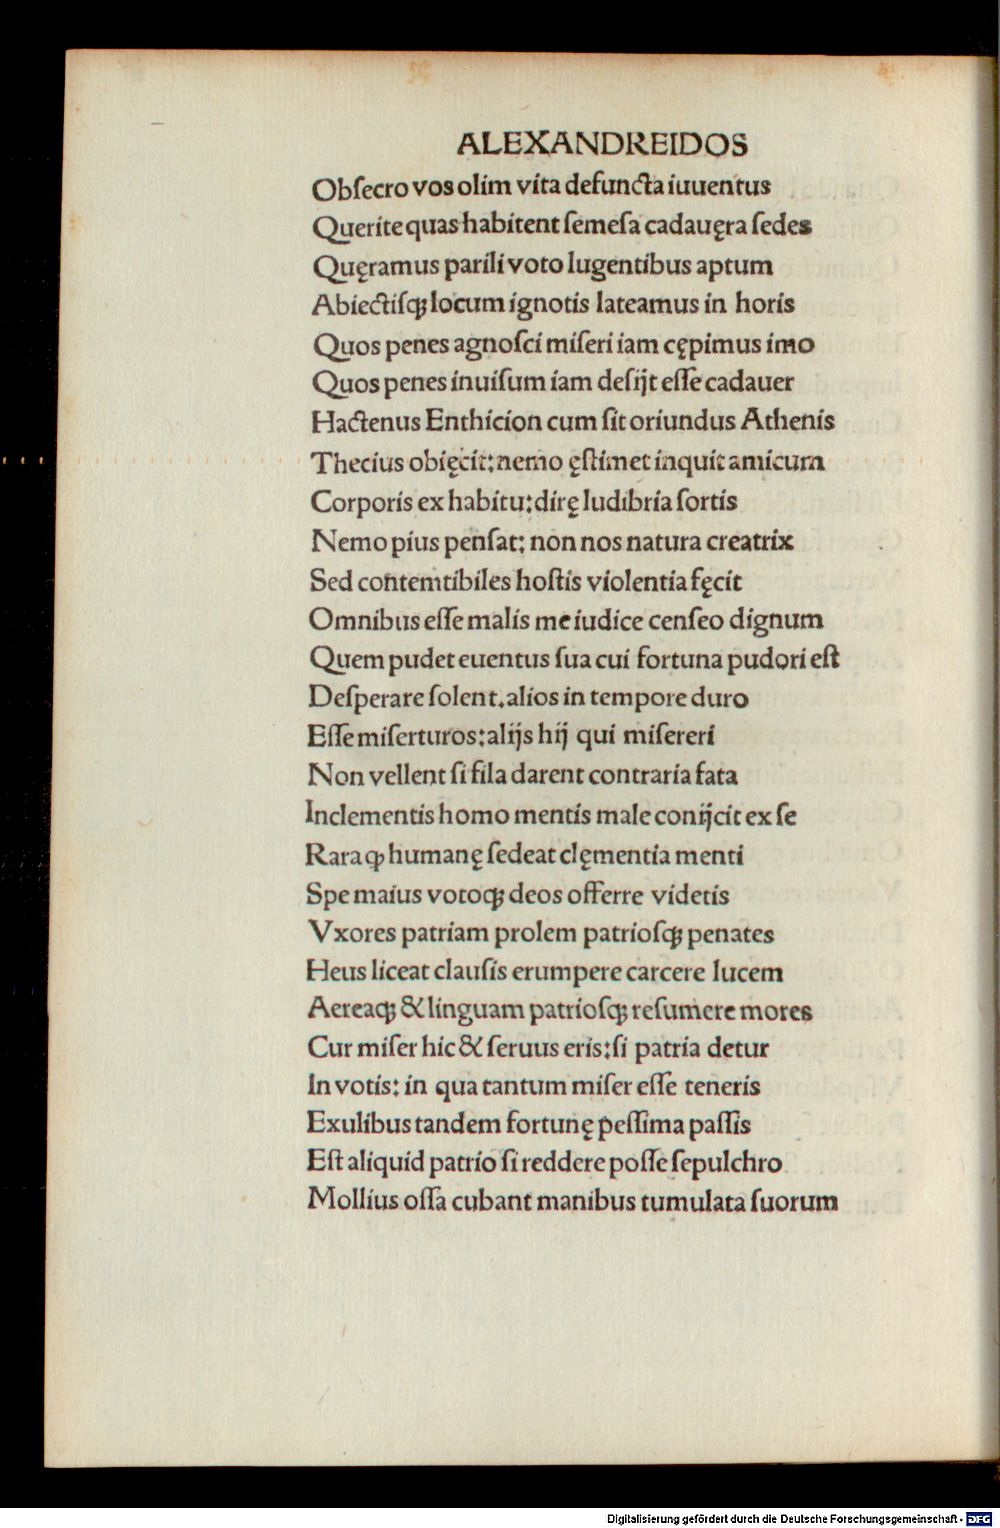 ALEXANDREIDOS
Obſecro vos olim vita defuncta iuuentus
Querite quas habitent ſemeſa cadauęra ſedes
Quęramus parili voto lugentibus aptum
Abiectiſqꝫ locum ignotis lateamus in horis
Quos penes agnoſci miſeri iam cępimus imo
Quos penes inuiſum iam deſijt eſſe cadauer
Hactenus Enthicion cum ſit oriundus Athenis
Thecius obięcit: nemo ęſtimet inquit amicum
Corporis ex habitu: dirę ludibria ſortis
Nemo pius penſat: non nos natura creatrix
Sed contemtibiles hoſtis violentia fęcit
Omnibus eſſe malis me iudice cenſeo dignum
Quem pudet euentus ſua cui fortuna pudori eſt
Deſperare ſolent. alios in tempore duro
Eſſe miſerturos: alijs hij qui miſereri
Non vellent ſi fila darent contraria fata
Inclementis homo mentis male conijcit ex ſe
Rara ꝙ humanę ſedeat clęmentia menti
Spe maius votoqꝫ deos offerre videtis
Vxores patriam prolem patrioſqꝫ penates
Heus liceat clauſis erumpere carcere lucem
Aereaqꝫ & linguam patrioſqꝫ reſumere mores
Cur miſer hic & ſeruus eris: ſi patria detur
In votis: in qua tantum miſer eſſe teneris
Exulibus tandem fortunę peſſima paſſis
Eſt aliquid patrio ſi reddere poſſe ſepulchro
Mollius oſſa cubant manibus tumulata ſuorum
Digitalisierung gefördert durch die Deutsche Forschungsgemeinschaft - DFG